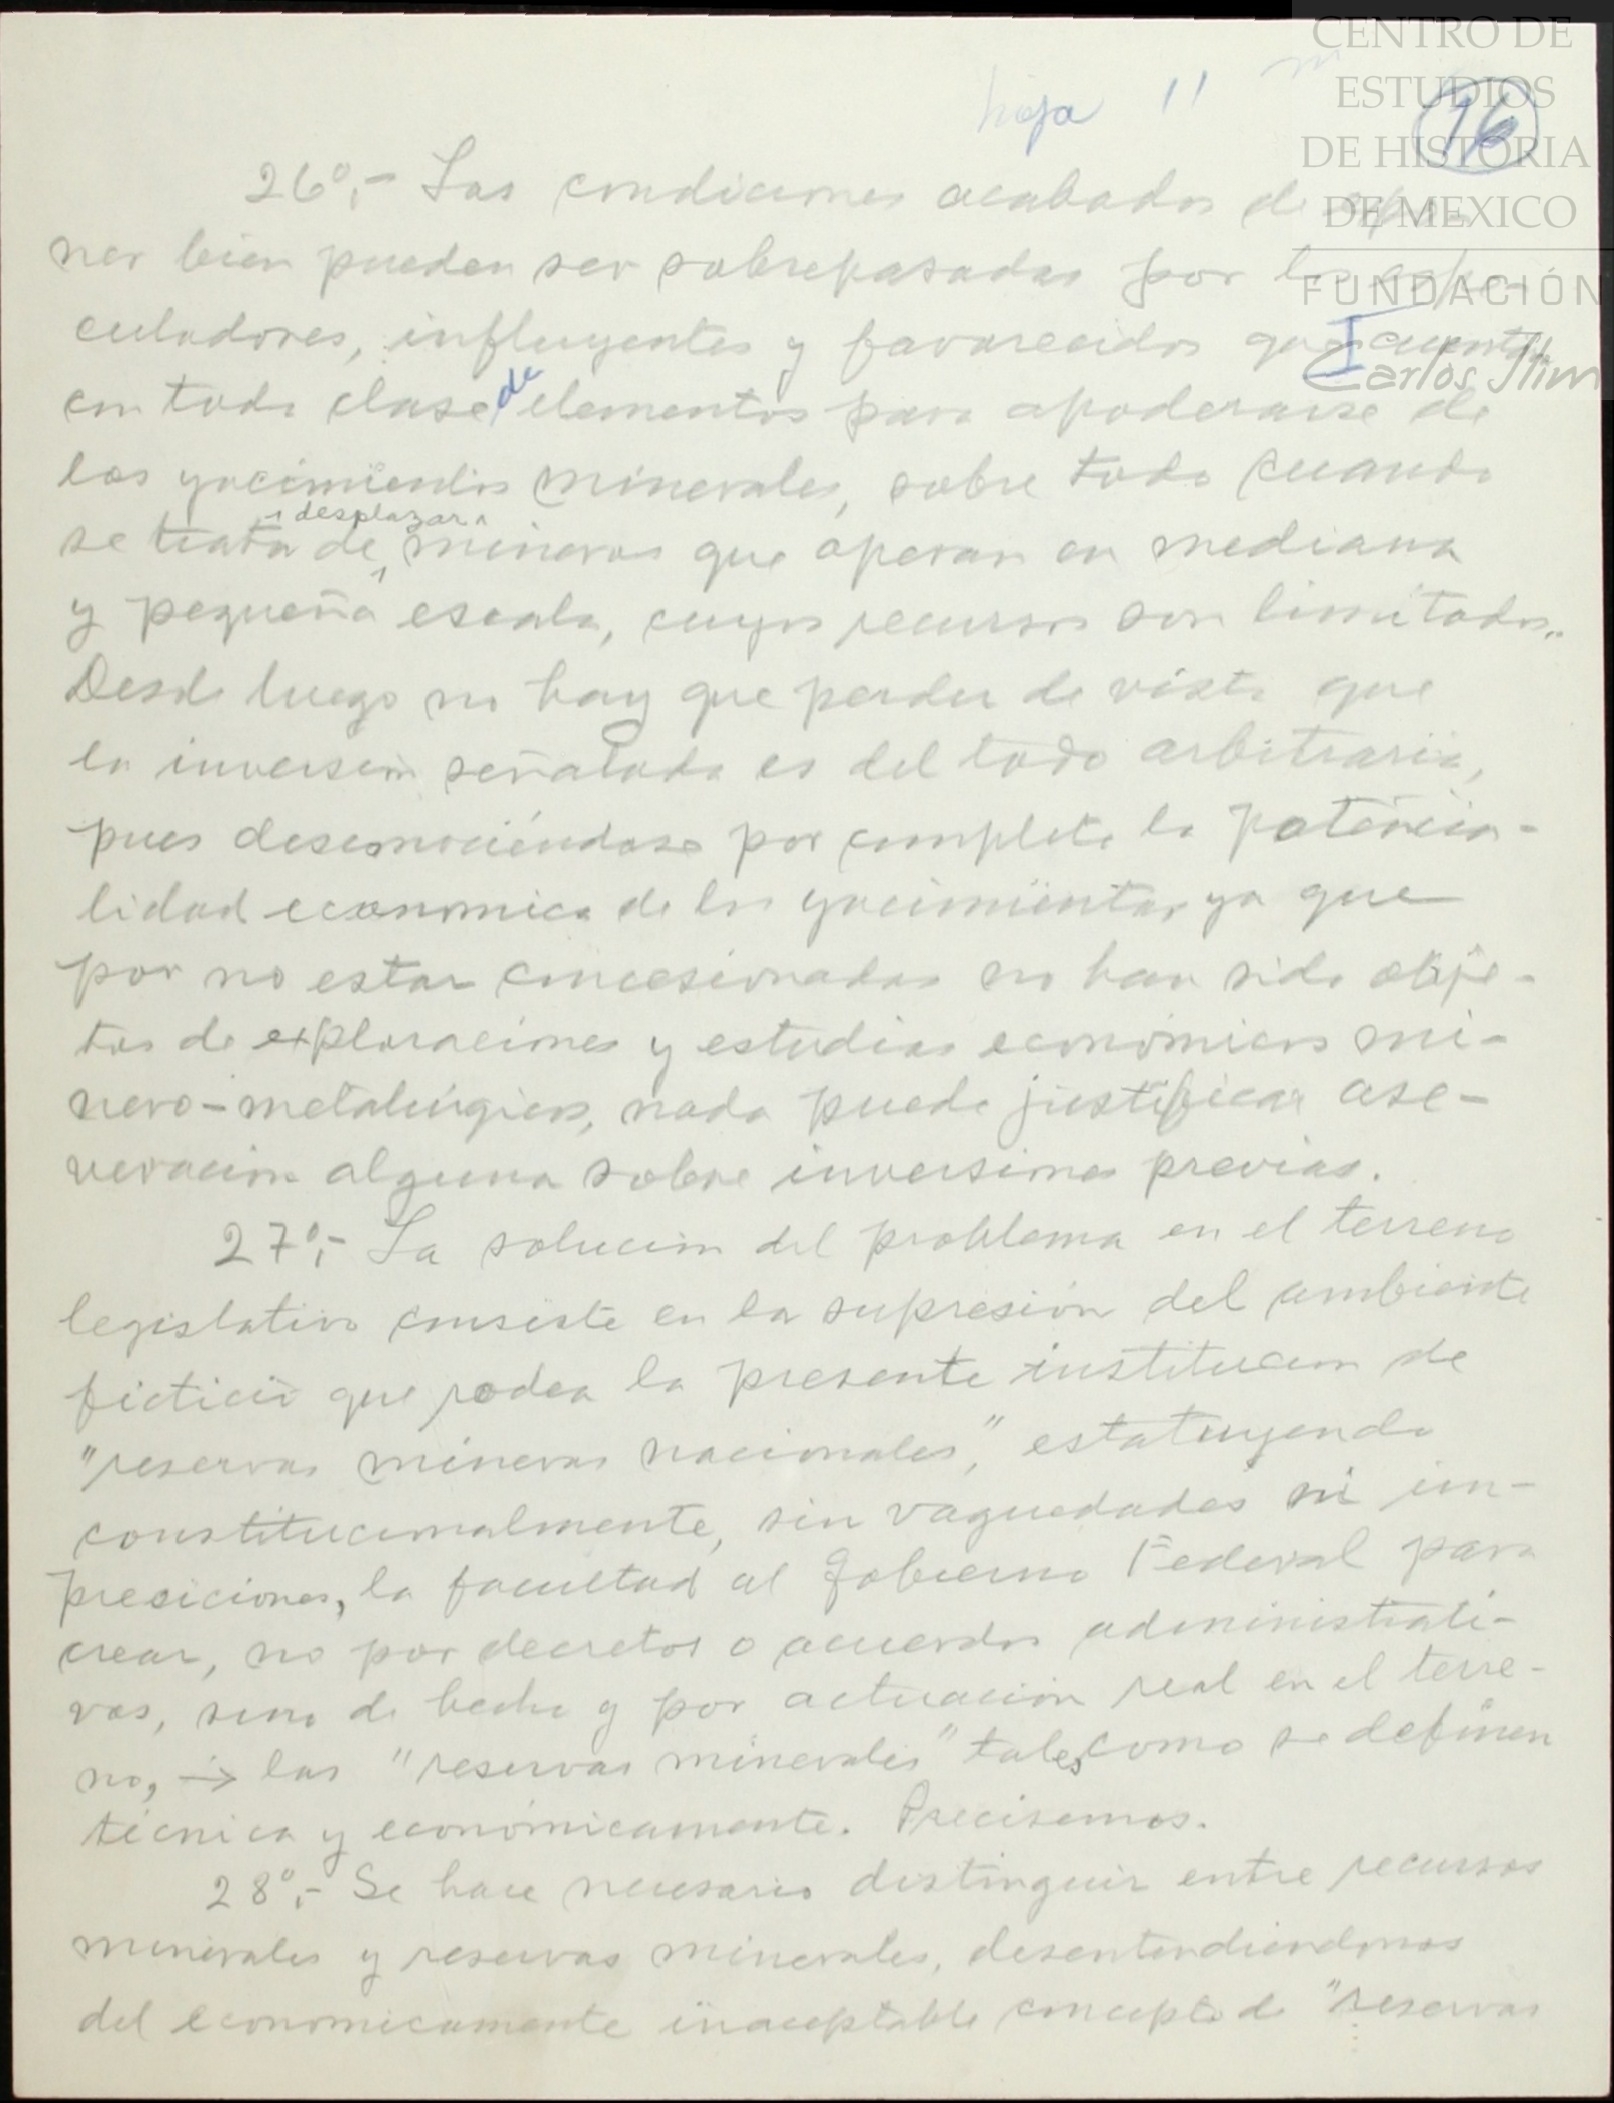 CENTRO DE
ESTUDIOS
DE HISTORIA
DE MEXICO
FUNDACIÓN
Carlos Slim
hoja 11
16
26º.- Las condiciones acabadas de expo-
ner bien pueden ser sobrepasadas por los espe-
culadores, influyentes y favorecidos que cuentan
con toda clase de elementos para apoderarse de
los yacimientos minerales, sobre todo cuando
se trata de desplazar a mineros que operan en mediana
y pequeña escala, cuyos recursos son limitados.
Desde luego no hay que perder de vista que
la inversión señalada es del todo arbitraria,
pues desconociéndose por completo la potencia-
lidad economica de los yacimientos, ya que
por no estar concesionados no han sido obje-
tos de exploraciones y estudios económicos mi-
nero-metalúrgicos, nada puede justificar ase-
veración alguna sobre inversiones previas.
27º.- La solución del problema en el terreno
legislativo consiste en la supresión del ambiente
ficticio que rodea la presente institución de
"reservas mineras nacionales", estatuyendo
constitucionalmente, sin vaguedades ni im-
preciciones, la facultad al Gobierno Federal para
crear, no por decretos o acuerdos administrati-
vos, sino de hecho y por actuación real en el terre-
no, → las "reservas minerales" tales como se definen
técnica y económicamente. Precisemos.
28º.- Se hace necesario distinguir entre recursos
minerales y reservas minerales, desentendiendonos
del economicamente inaceptable concepto de "reservas